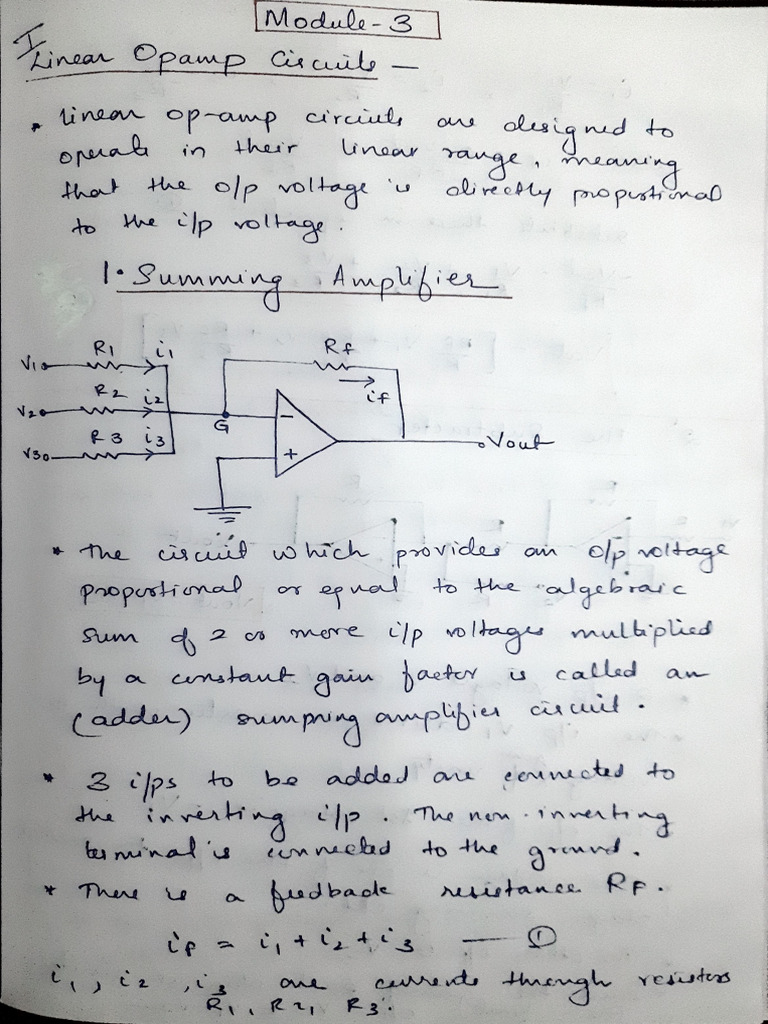 Module-3
I
Linear Opamp Circuits —
* linear op-amp circuits are designed to
operate in their linear range, meaning
that the o/p voltage is directly proportional
to the i/p voltage.
1. Summing Amplifier
R1 i1 Rf
V1
R2 i2 if
V2
G −
R3 i3 Vout
V3 +
* The circuit which provides an o/p voltage
proportional or equal to the algebraic
sum of 2 or more i/p voltages multiplied
by a constant gain factor is called an
(adder) summing amplifier circuit.
* 3 i/ps to be added are connected to
the inverting i/p. The non-inverting
terminal is connected to the ground.
* There is a feedback resistance RF.
if = i1 + i2 + i3 — ①
i1, i2, i3 are currents through resistors
R1, R2, R3.